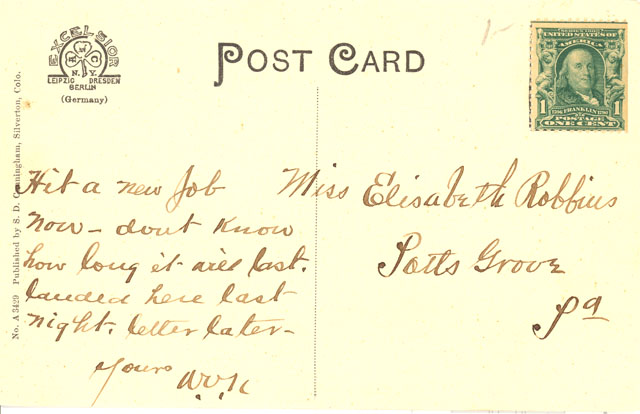 EXCELSIOR
N.Y.
LEIPZIG DRESDEN
BERLIN
(Germany)
POST CARD
UNITED STATES OF
AMERICA
1 FRANKLIN 1
POSTAGE
ONE CENT
No. A 3429 Published by S. D. Cunningham, Silverton, Colo.
Hit a new Job
now - dont know
how long it will last.
landed here last
night. letter later -
Yours
Miss Elisabeth Robbins
Potts Grove
Pa